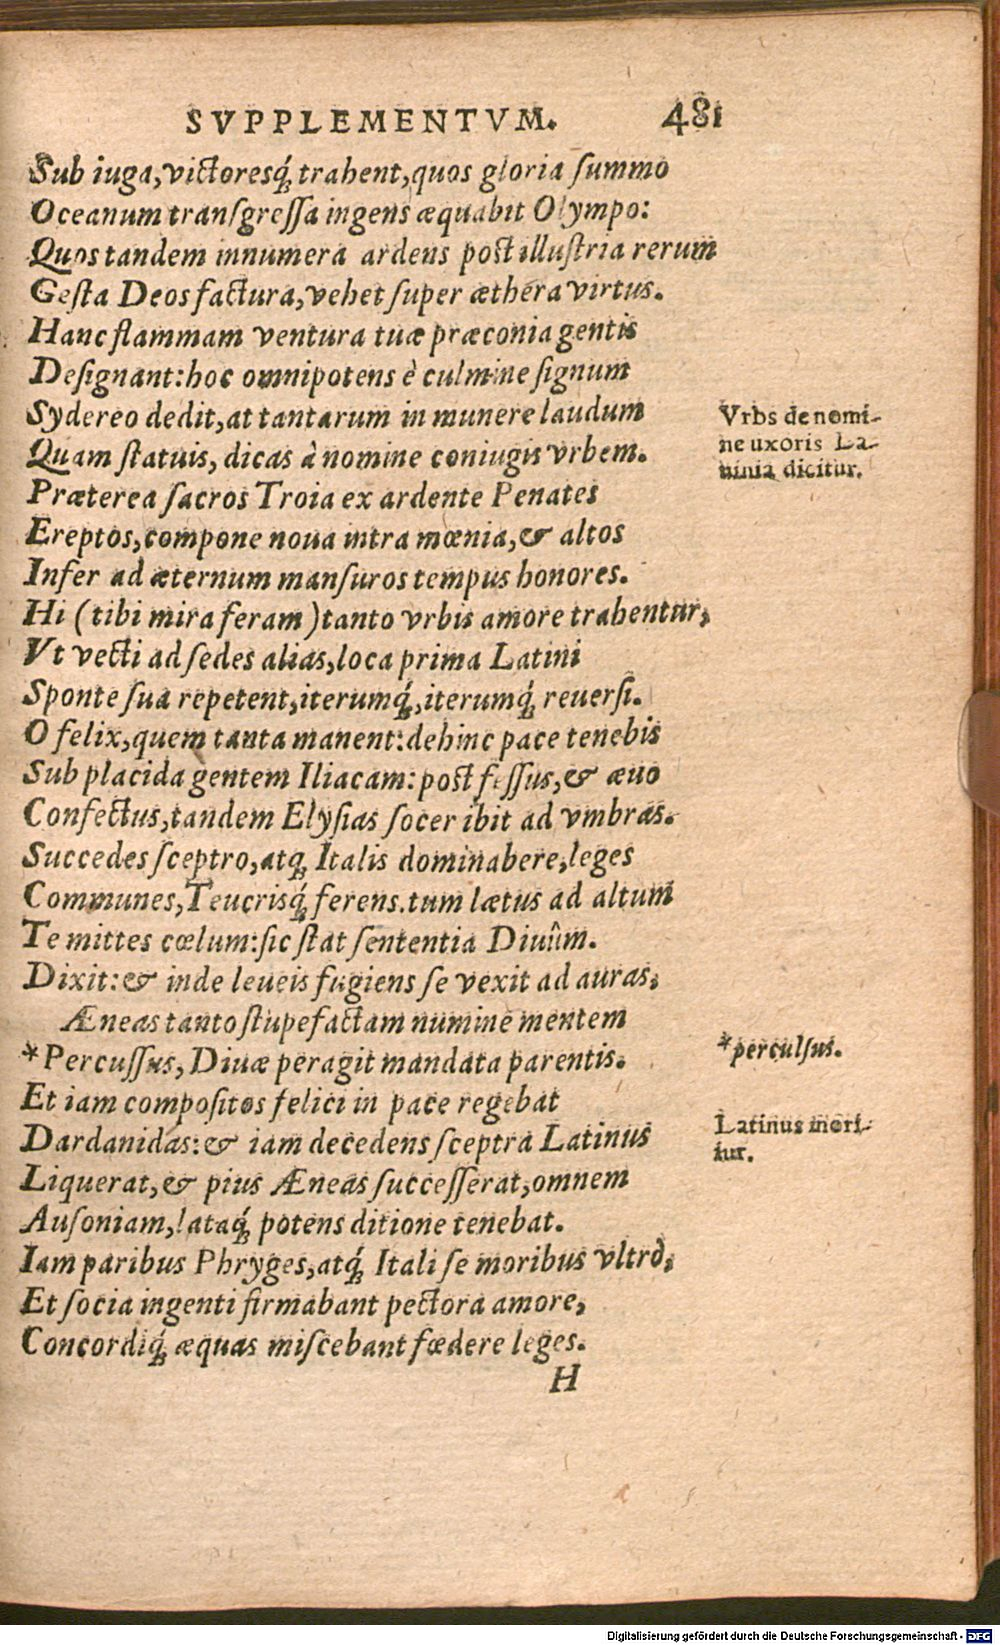 SVPPLEMENTVM. 481
Sub iuga, victoresq́; trahent, quos gloria summo
Oceanum transgressa ingens æquabit Olympo:
Quos tandem innumera ardens post illustria rerum
Gesta Deos factura, vehet super æthera virtus.
Hanc flammam ventura tuæ præconia gentis
Designant: hoc omnipotens è culmine signum
Sydereo dedit, at tantarum in munere laudum
Quam statuis, dicas à nomine coniugis vrbem.
Vrbs de nomi-
ne uxoris La-
uinia dicitur.
Præterea sacros Troia ex ardente Penates
Ereptos, compone noua intra mœnia, & altos
Infer ad æternum mansuros tempus honores.
Hi (tibi mira feram) tanto vrbis amore trahentur,
Vt vecti ad sedes alias, loca prima Latini
Sponte sua repetent, iterumq́;, iterumq́; reuersi.
O felix, quem tanta manent: dehinc pace tenebis
Sub placida gentem Iliacam: post fessus, & æuo
Confectus, tandem Elysias socer ibit ad vmbras.
Succedes sceptro, atq; Italis dominabere, leges
Communes, Teucrisq́; ferens. tum lætus ad altum
Te mittes cœlum: sic stat sententia Diuûm.
Dixit: & inde leueis fugiens se vexit ad auras,
Æneas tanto stupefactam numine mentem
*Percussus, Diuæ peragit mandata parentis.
*perculsus.
Et iam compositos felici in pace regebat
Dardanidas: & iam decedens sceptra Latinus
Latinus mori-
tur.
Liquerat, & pius Æneas successerat, omnem
Ausoniam, lataq́; potens ditione tenebat.
Iam paribus Phryges, atq́; Itali se moribus vltrò,
Et socia ingenti firmabant pectora amore,
Concordiq́; æquas miscebant fœdere leges.
H
Digitalisierung gefördert durch die Deutsche Forschungsgemeinschaft - DFG